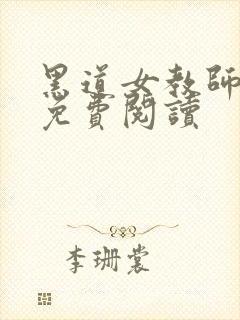 黑道女教師
免費閱讀
李珊裳